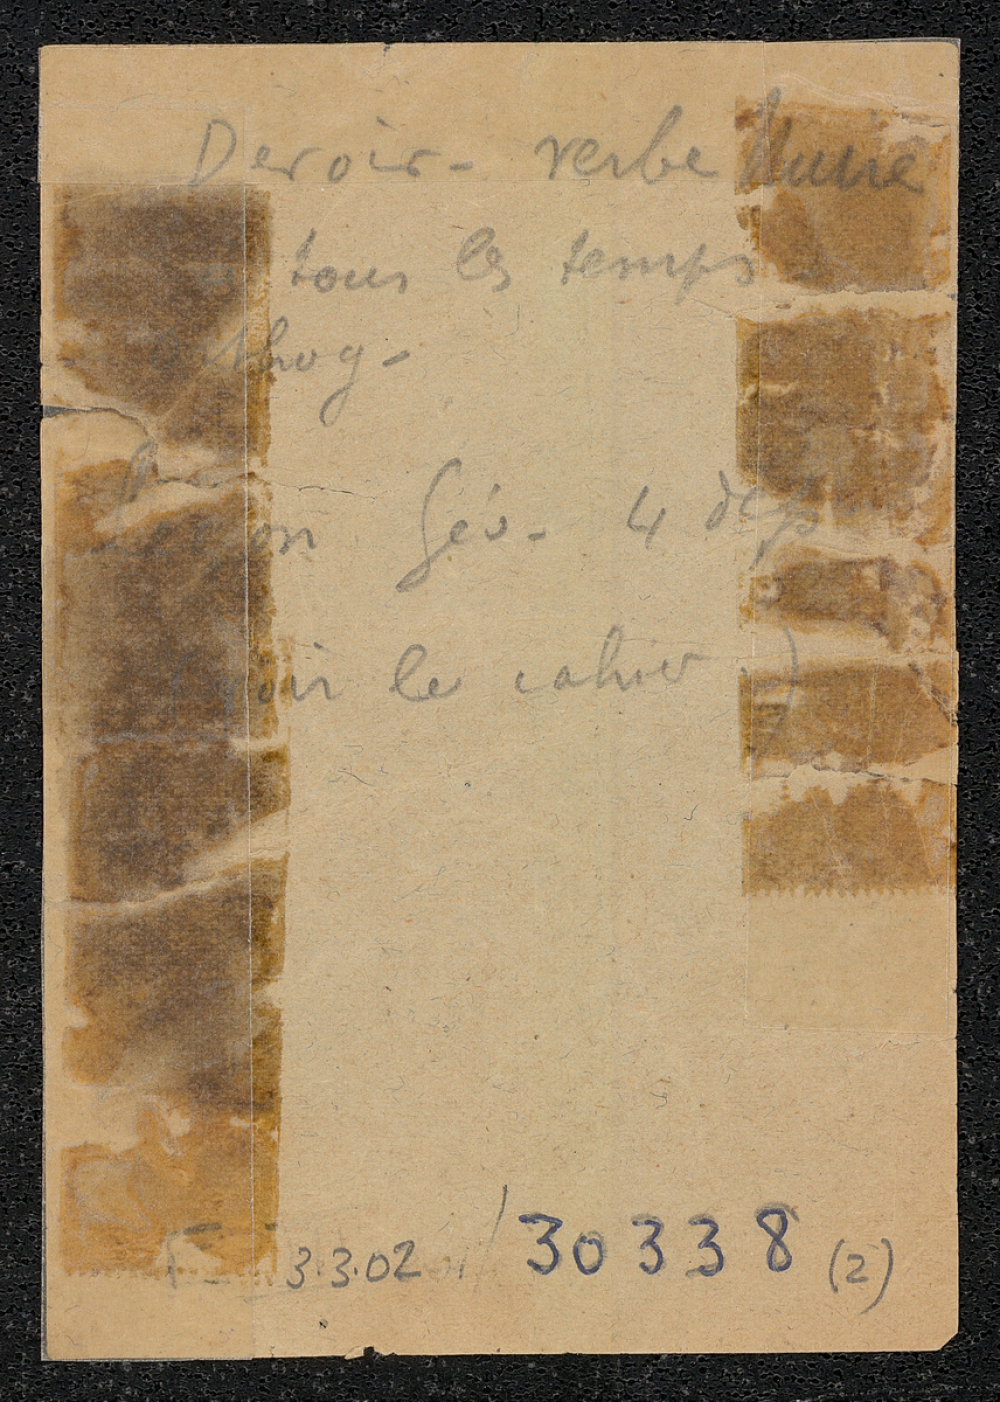 Devoir - verbe Nuire
tous les temps
orthog -
Leçon Géo - 4 dep
voir le cahier )
3.3.02 30338 (2)